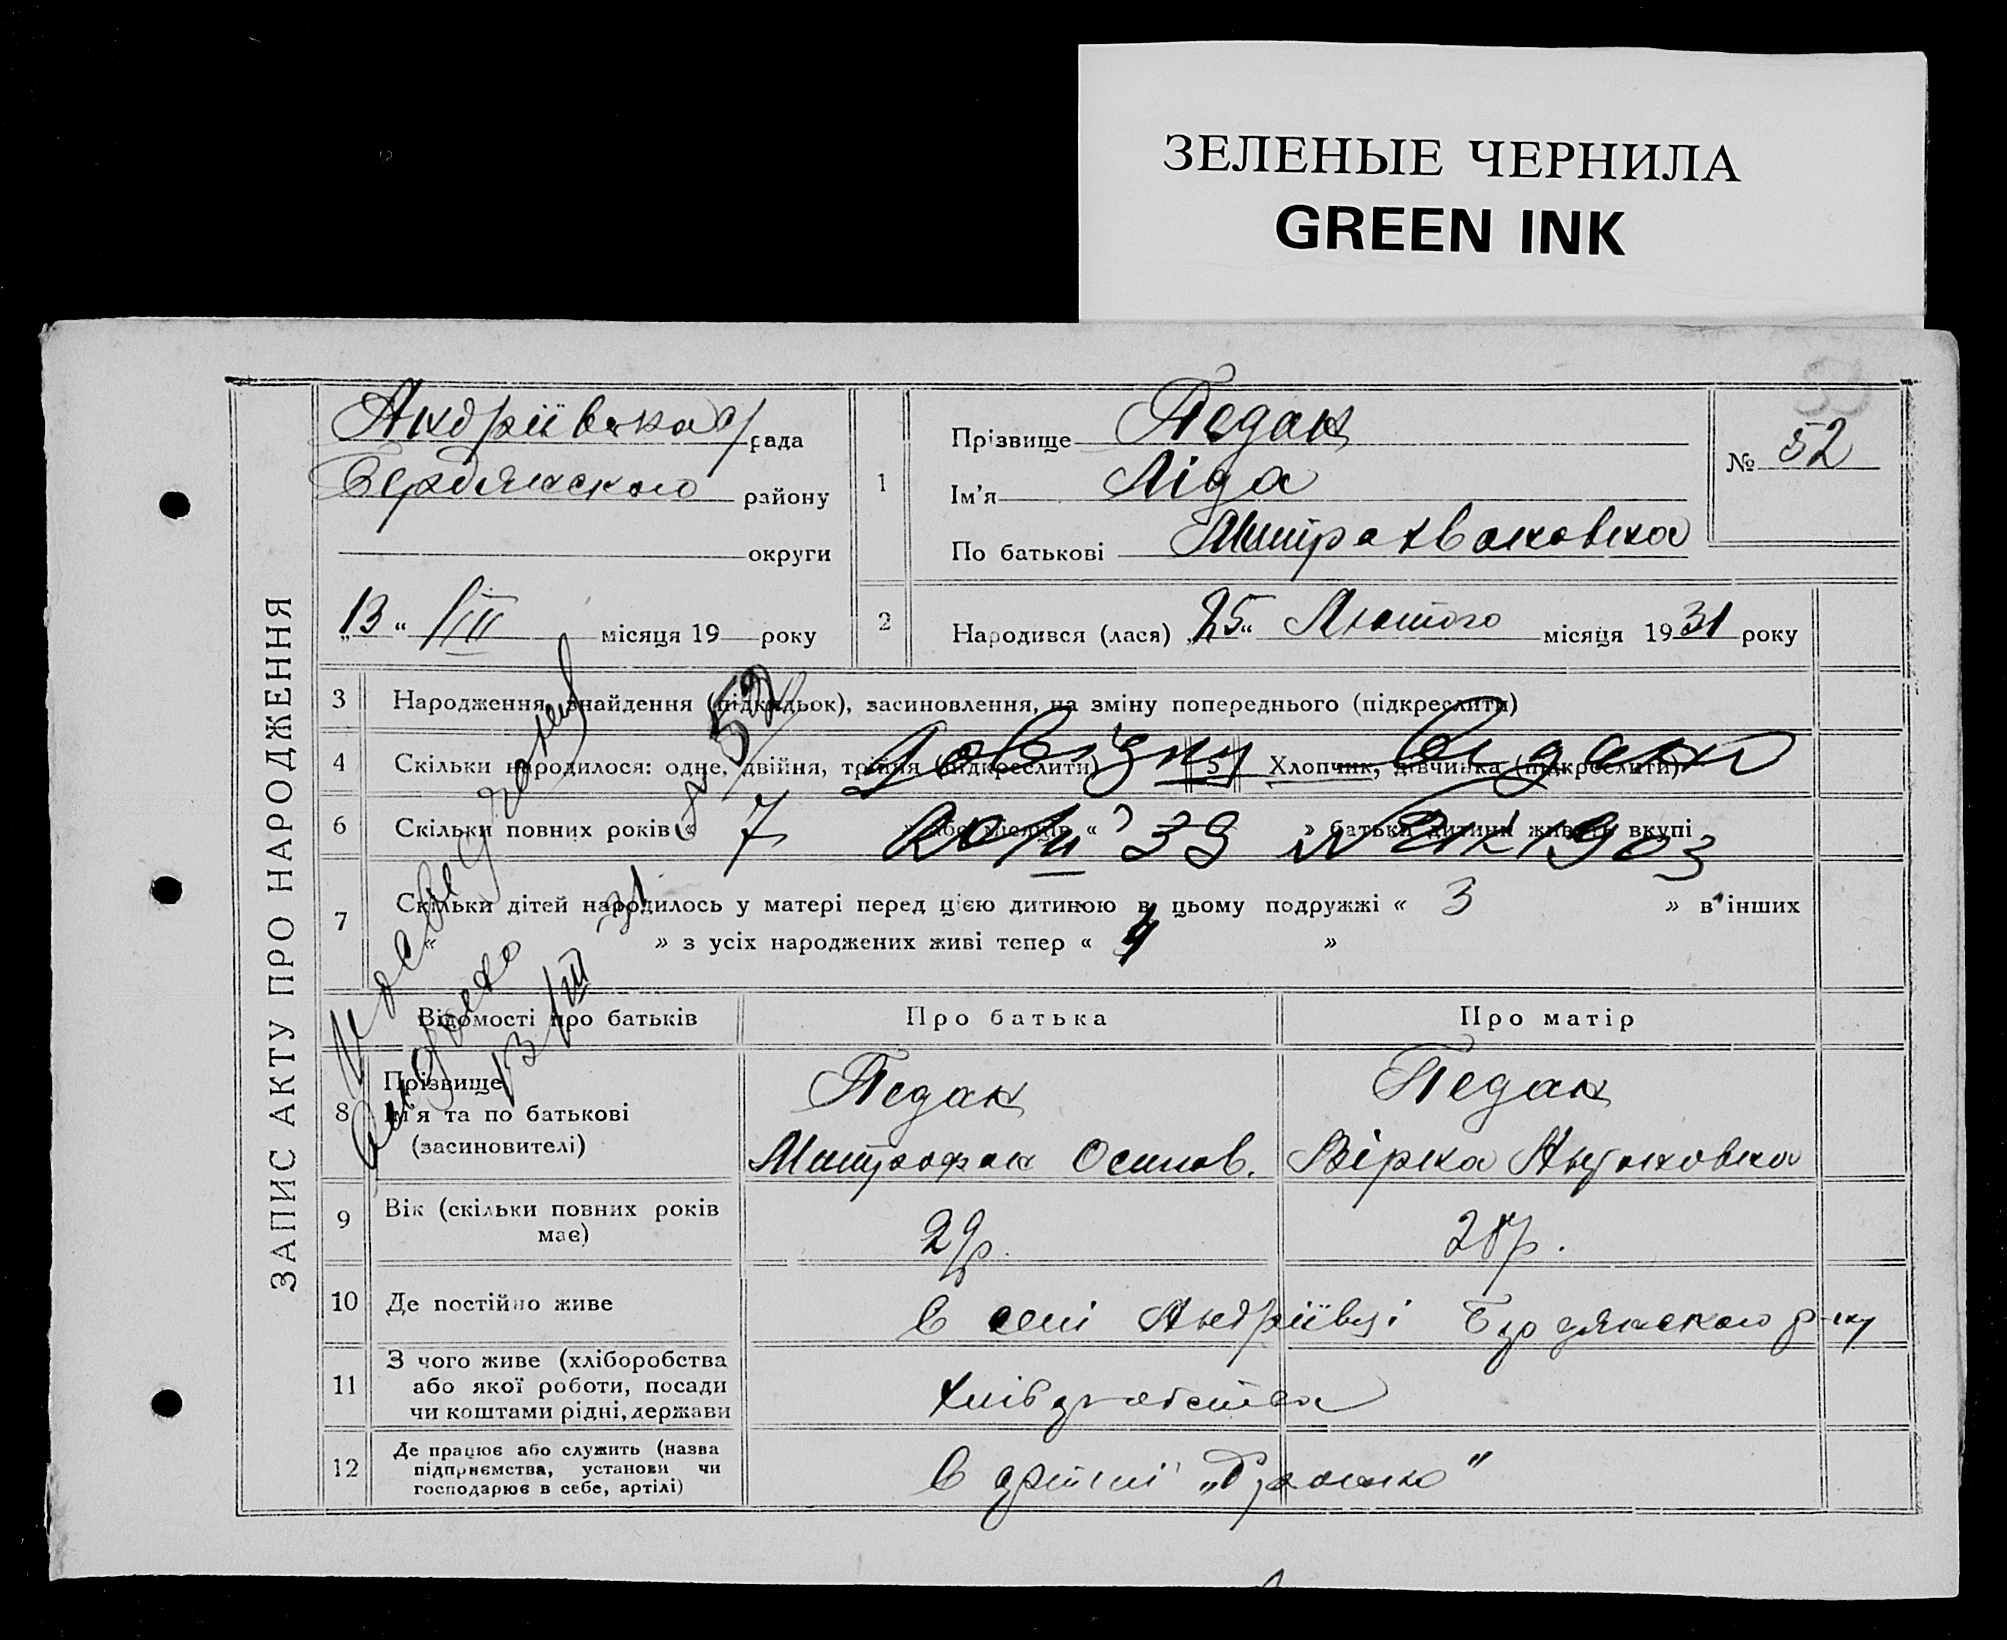 ЗЕЛЕНЫЕ ЧЕРНИЛА
GREEN INK
ЗАПИС АКТУ ПРО НАРОДЖЕННЯ
Андріївська с/рада
Бердянского району
округи
„13“ /III місяця 19 року
1
Прізвище Педак
Ім'я Ліда
По батькові Митрахвановна
№ 52
2
Народився (лася) „25“ Лютого місяця 1931 року
3 Народження, знайдення (підкидьок), засиновлення, на зміну попереднього (підкреслити)
4 Скільки народилося: одне, двійня, трійня (підкреслити) 5 Хлопчик, дівчинка (підкреслити)
Довідку видани
№ 52
6 Скільки повних років « 7 » або місяців « » батьки дитини живуть вкупі
20/II 39 №
7 Скільки дітей народилось у матері перед цією дитиною в цьому подружжі « 3 » в інших
« » з усіх народжених живі тепер « 4 »
посвід
31
13/III
Відомості про батьків Про батька Про матір
8 Прізвище
Ім'я та по батькові
(засиновителі)
Педак
Митрофан Осипов.
Педак
Вірка Антоновна
9 Вік (скільки повних років має)
29р. 28р.
10 Де постійно живе
в селі Андріївці Бердянского р-ну
11 З чого живе (хліборобства
або якої роботи, посади
чи коштами рідні, держави
Хліборобства
12 Де працює або служить (назва
підприємства, установи чи
господарює в себе, артілі)
в артілі